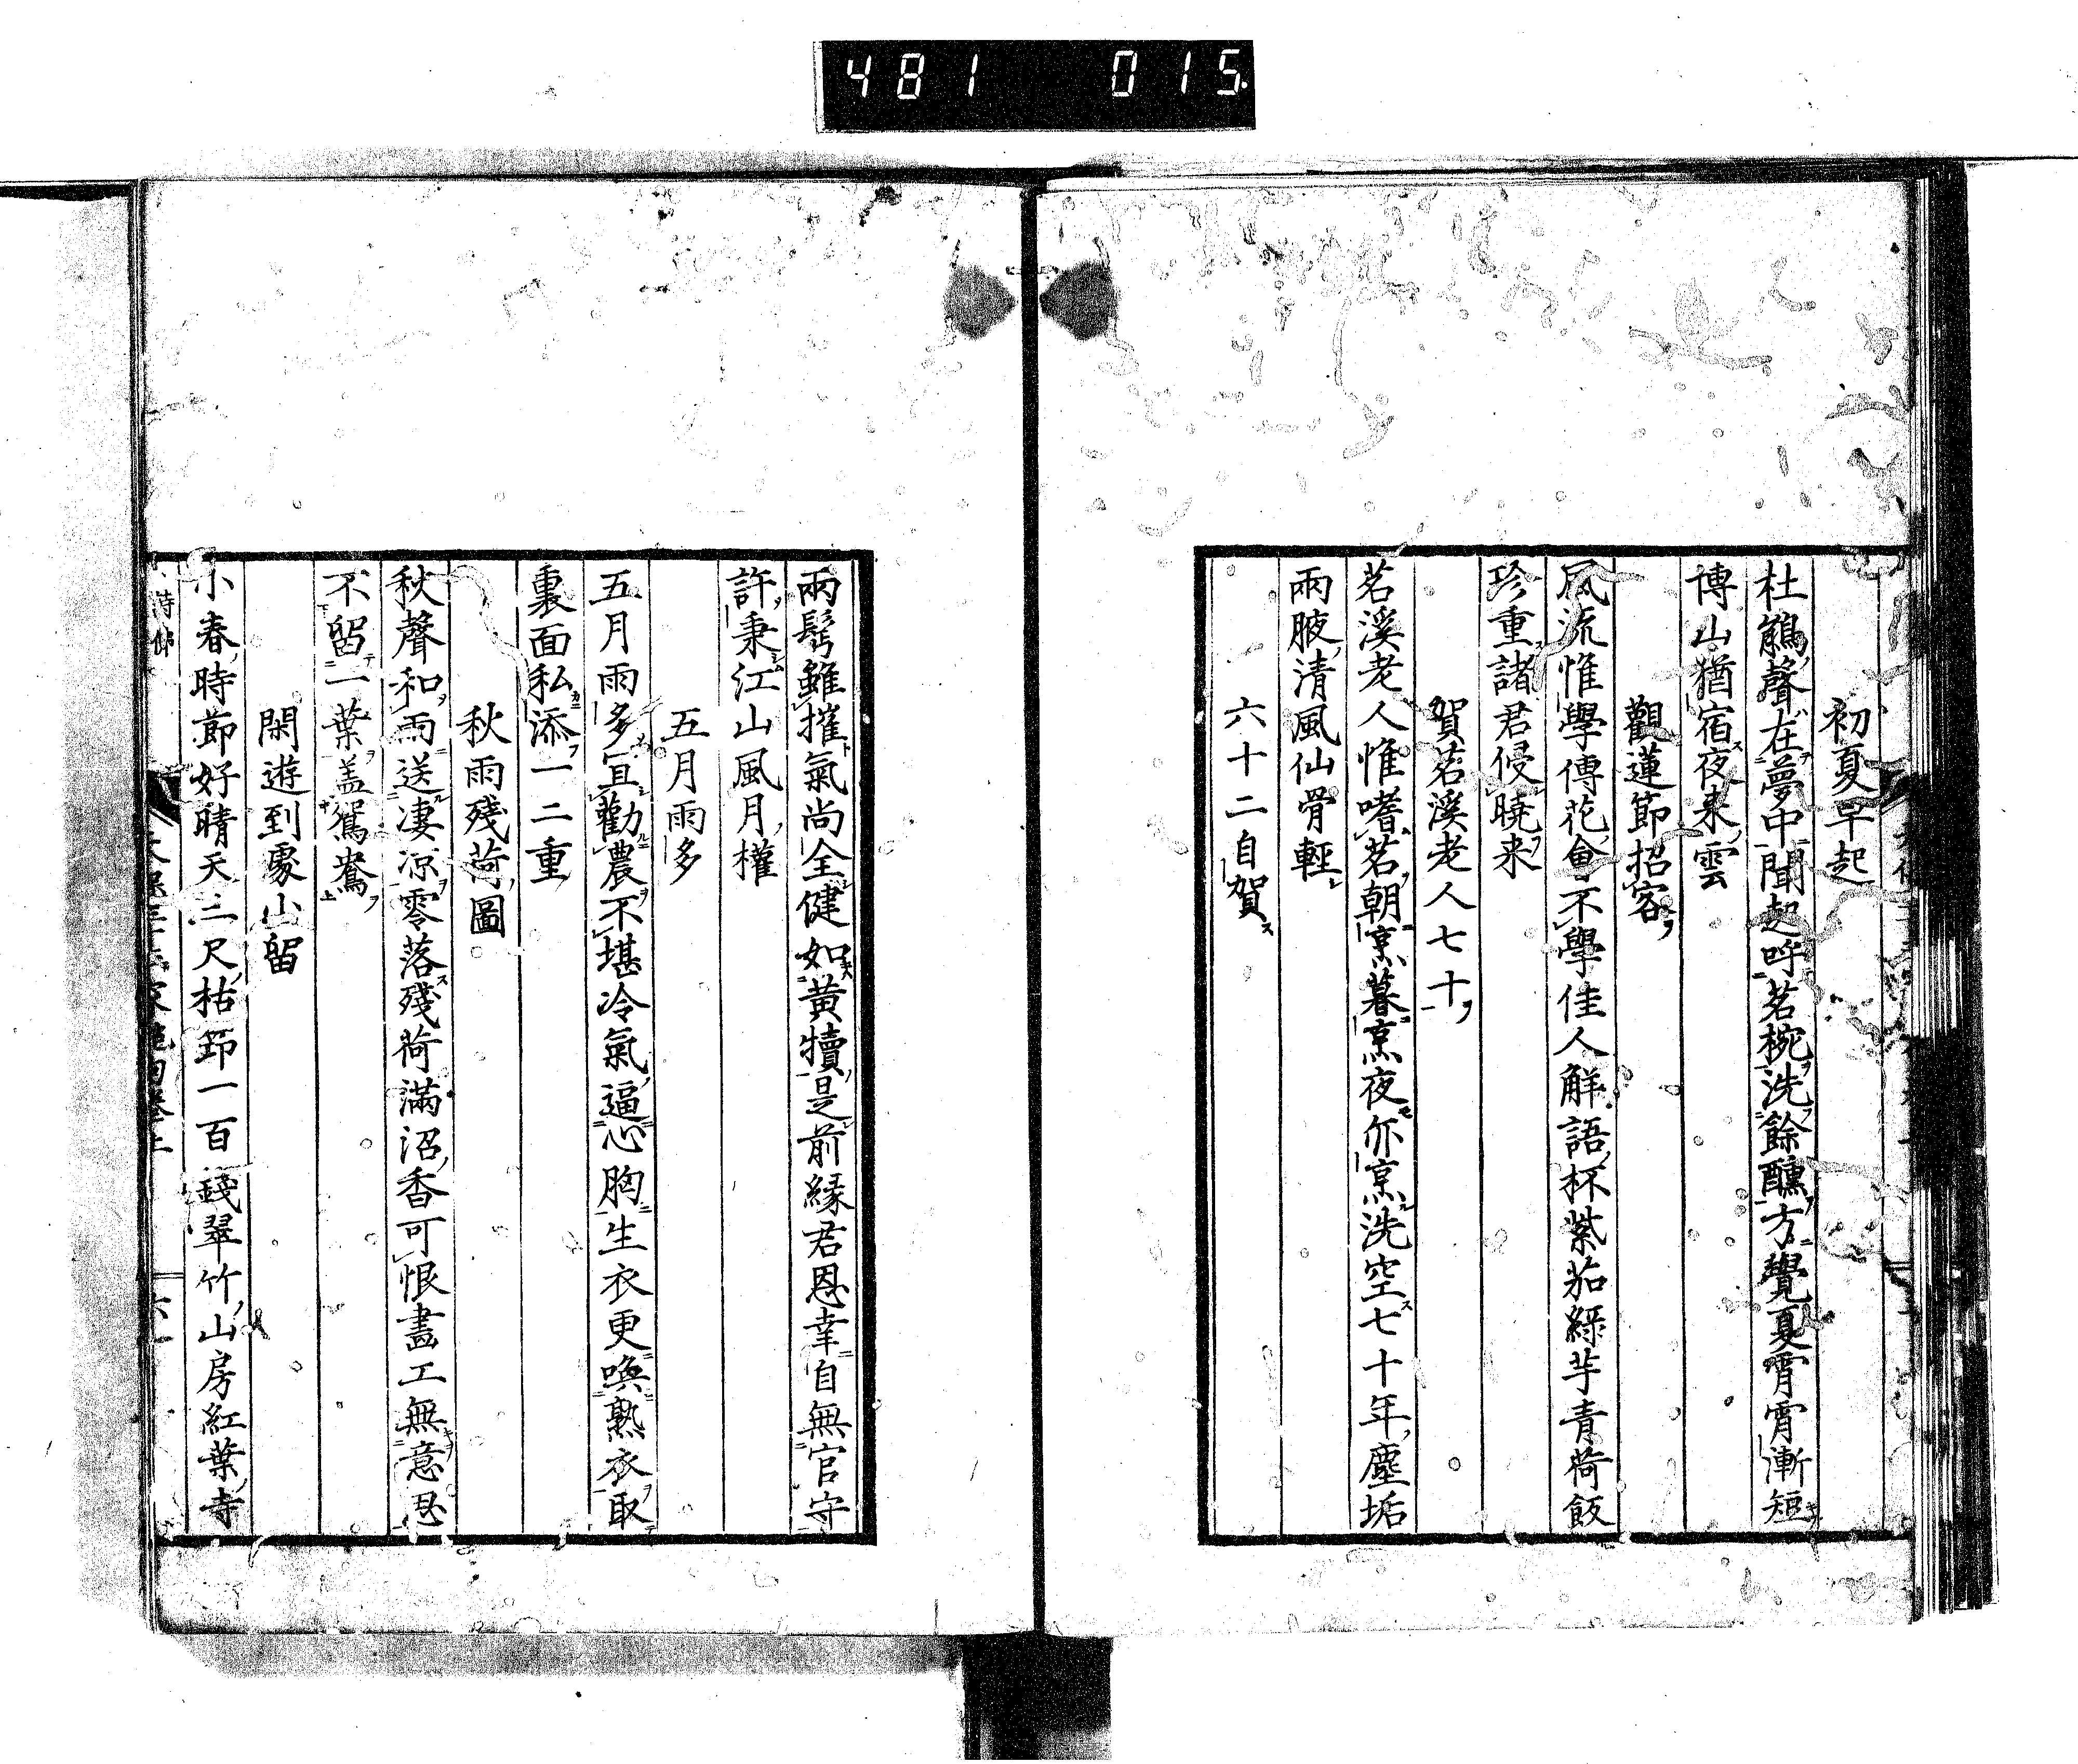 481 015
初夏早起
杜鵑聲在夢中聞起呼茗椀洗餘醺方覺夏宵宵漸短
博山猶宿夜来雲
觀蓮節招客
風流惟學傳花會不學佳人解語杯紫茄綠芋青荷飯
珍重諸君侵曉来
賀茗溪老人七十
茗溪老人惟嗜茗朝烹暮烹夜亦烹洗空七十年塵垢
兩腋清風仙骨輕
六十二自賀
兩髩雖摧氣尚全健如黃犢是前緣君恩幸自無官守
許秉江山風月權
五月雨多
五月雨多宜勸農不堪冷氣逼心胸生衣更喚熟衣取
裏面私添一二重
秋雨殘荷圖
秋聲和雨送凄凉零落殘荷滿沼香可恨畫工無意思
不留一葉盖鴛鴦
閑遊到處山留
小春時節好晴天三尺枯笻一百錢翠竹山房紅葉寺